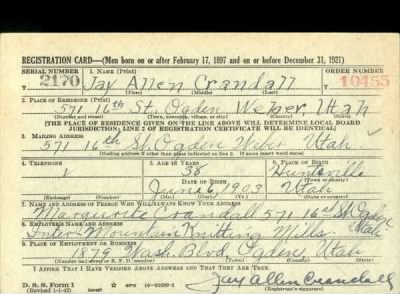 REGISTRATION CARD—(Men born on or after February 17, 1897 and on or before December 31, 1921)
SERIAL NUMBER 1. NAME (Print) ORDER NUMBER
T 2170 Jay Allen Crandall T 10455
(First) (Middle) (Last)
2. PLACE OF RESIDENCE (Print)
571 16th St. Ogden Weber Utah
(Number and street) (Town, township, village, or city) (County) (State)
[THE PLACE OF RESIDENCE GIVEN ON THE LINE ABOVE WILL DETERMINE LOCAL BOARD
JURISDICTION; LINE 2 OF REGISTRATION CERTIFICATE WILL BE IDENTICAL]
3. MAILING ADDRESS
571 16th St. Ogden Weber Utah.
[Mailing address if other than place indicated on line 2. If same insert word same]
4. TELEPHONE 5. AGE IN YEARS 6. PLACE OF BIRTH
38 Huntsville
DATE OF BIRTH (Town or county)
June 6, 1903 Utah
(Exchange) (Number) (Mo.) (Day) (Yr.) (State or country)
7. NAME AND ADDRESS OF PERSON WHO WILL ALWAYS KNOW YOUR ADDRESS
Marguerite Crandall 571 16th St. Ogden Utah
8. EMPLOYER'S NAME AND ADDRESS
Inter-Mountain Knitting Mills
9. PLACE OF EMPLOYMENT OR BUSINESS
1879 Wash. Blvd Ogden Utah
(Number and street or R. F. D. number) (Town) (County) (State)
I AFFIRM THAT I HAVE VERIFIED ABOVE ANSWERS AND THAT THEY ARE TRUE.
D. S. S. Form 1 GPO Jay Allen Crandall
(Revised 1-1-42) (over)